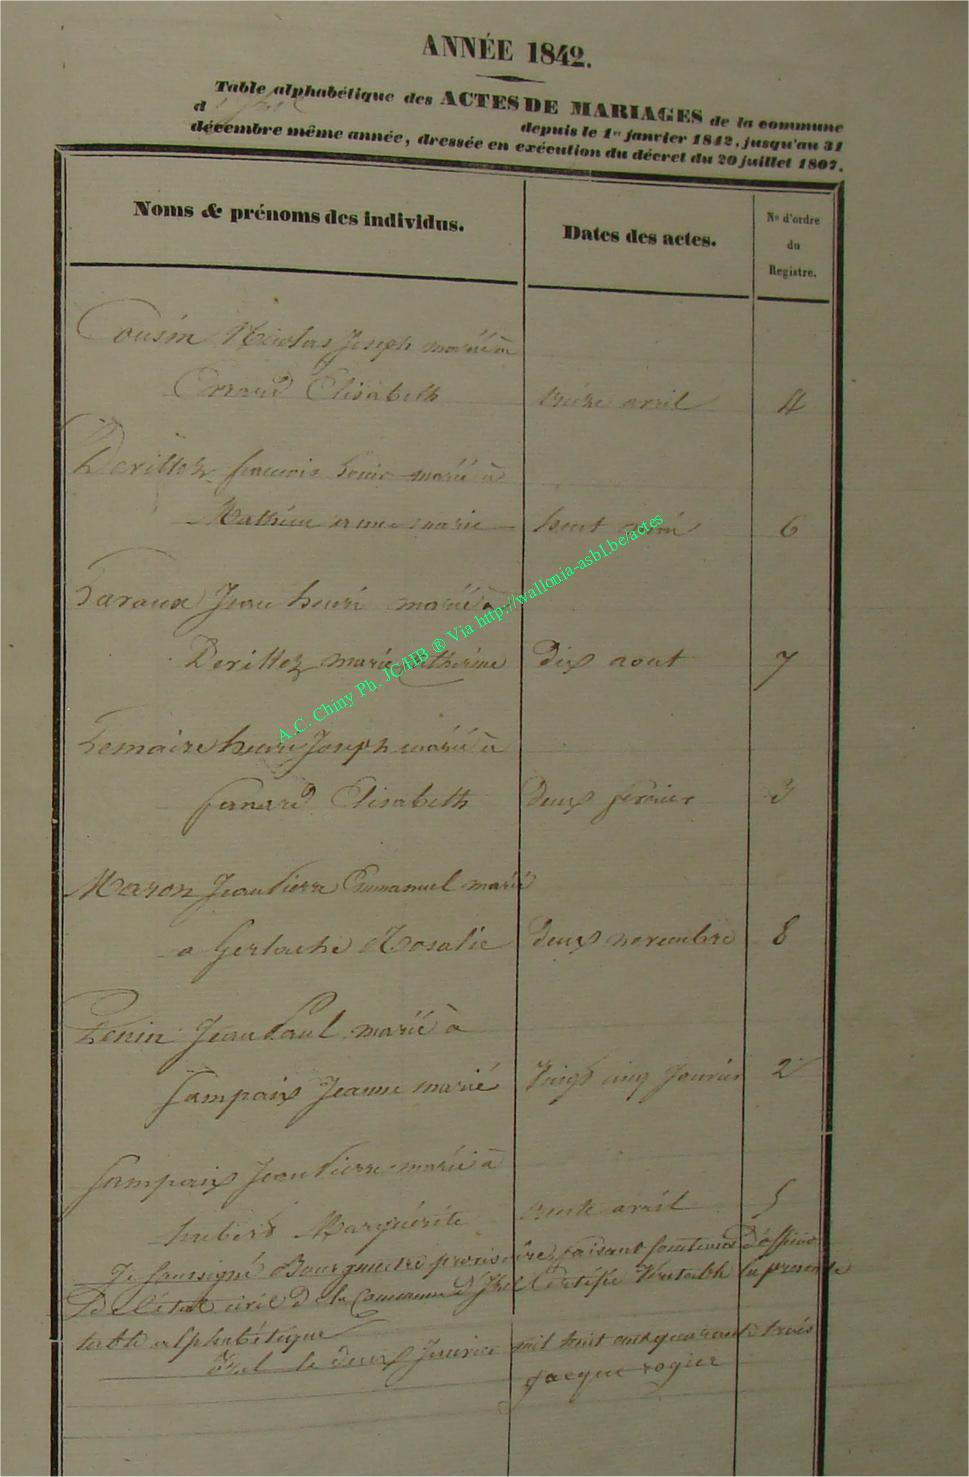 ANNÉE 1842.
Table alphabétique des ACTES DE MARIAGES de la commune
d'Izel depuis le 1er janvier 1842, jusqu'au 31
décembre même année, dressée en exécution du décret du 20 juillet 1807.
Noms & prénoms des individus.
Dates des actes.
No d'ordre
du
Registre.
Cousin Nicolas Joseph marié à
Errard Elisabeth treize avril 4
Devillez francois Louis marié à
Mathieu anne marie huit 6
Laraux Jean henri marié à
Devillez marie catherine dix aout 7
Lemaire henri Joseph marié à
fanard Elisabeth deux fevrier 3
Maron Jean Pierre Emmanuel marié
a Gerlache Rosalie deux novembre 8
Penin Jean Paul marié à
Jampaix Jeanne marie Vingt cinq Janvier 2
Jampaix Jean Pierre marié à
hubert Marguérite trente avril 5
Je soussigné Bourgmestre provisoire, faisant fonctions d'officier
De l'état civil de la Commune d'Izel Certifie Véritable la présente
table alphabétique
Izel le deux Janvier mil huit cent quarante trois
Jacque rogier
A.C. Chiny Ph. JC/HB ® Via http://wallonia-asbl.be/actes